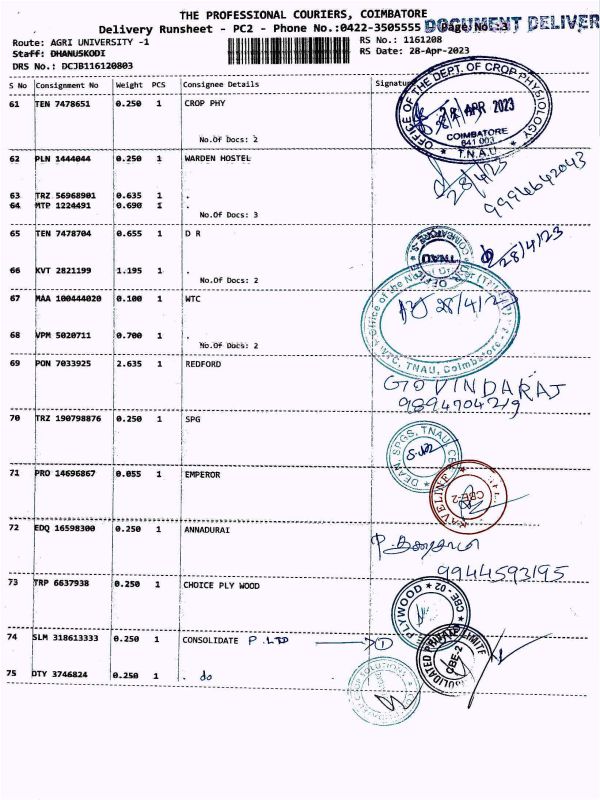 THE PROFESSIONAL COURIERS, COIMBATORE
Delivery Runsheet - PC2 - Phone No.:0422-3505555 Page No.:3
DOCUMENT DELIVER
Route: AGRI UNIVERSITY -1
RS No.: 1161208
Staff: DHANUSKODI
RS Date: 28-Apr-2023
DRS No.: DCJB116120803
S No Consignment No Weight PCS Consignee Details Signatur
61 TEN 7478651 0.250 1 CROP PHY
No.Of Docs: 2
OFFICE OF THE DEPT. OF CROP PHYSIOLOGY
APR 2023
COIMBATORE
641 003
T.N.A.U
62 PLN 1444044 0.250 1 WARDEN HOSTEL
28/4/23
9994642043
63 TRZ 56968901 0.635 1 .
64 MTP 1224491 0.690 1 .
No.Of Docs: 3
65 TEN 7478704 0.655 1 D R
28/4/23
TNAU
66 KVT 2821199 1.195 1 .
No.Of Docs: 2
67 MAA 100444020 0.100 1 WTC
28/4/2
WTC, TNAU, Coimbatore
68 VPM 5020711 0.700 1 .
No.Of Docs: 2
69 PON 7033925 2.635 1 REDFORD
GOVINDARAJ
9894704219
70 TRZ 190798876 0.250 1 SPG
DEAN, SPGS, TNAU, CBE
71 PRO 14696867 0.055 1 EMPEROR
CBE-2
72 EDQ 16598300 0.250 1 ANNADURAI
9944593195
73 TRP 6637938 0.250 1 CHOICE PLY WOOD
PLYWOOD * CBE - 02 *
74 SLM 318613333 0.250 1 CONSOLIDATE P. LTD 1
CBE-2
75 DTY 3746824 0.250 1 . do